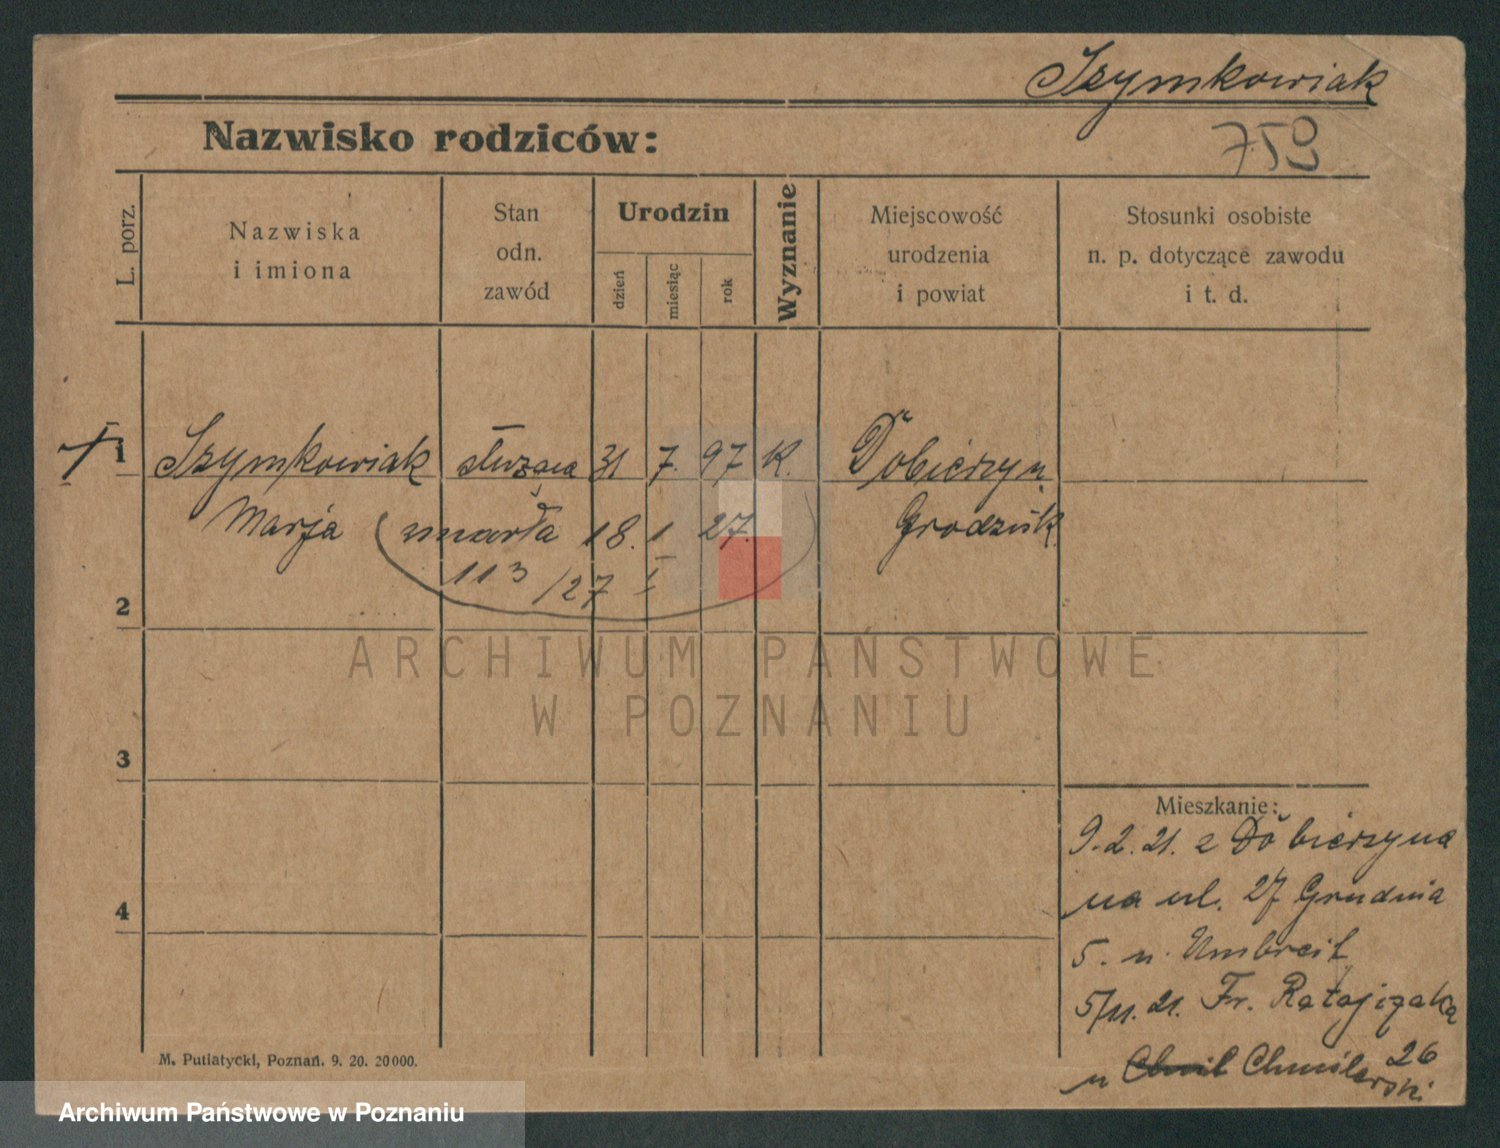 Szymkowiak
Nazwisko rodziców:
759
L. porz.
Nazwiska
i imiona
Stan
odn.
zawód
Urodzin
dzień
miesiąc
rok
Wyznanie
Miejscowość
urodzenia
i powiat
Stosunki osobiste
n. p. dotyczące zawodu
i t. d.
1 Szymkowiak służąca 31 7. 97 K. Dobieżyn
Marja zmarła 18. 1. 27. Grodzisk
113/27 I
2
ARCHIWUM PAŃSTWOWE
W POZNANIU
3
Mieszkanie:
9.2.21. z Dobieżyna
na ul. 27 Grudnia
5. u. Umbreit
5/11.21. Fr. Ratajczaka
26
u Chmielarski
4
M. Putiatycki, Poznań. 9. 20. 20000.
Archiwum Państwowe w Poznaniu